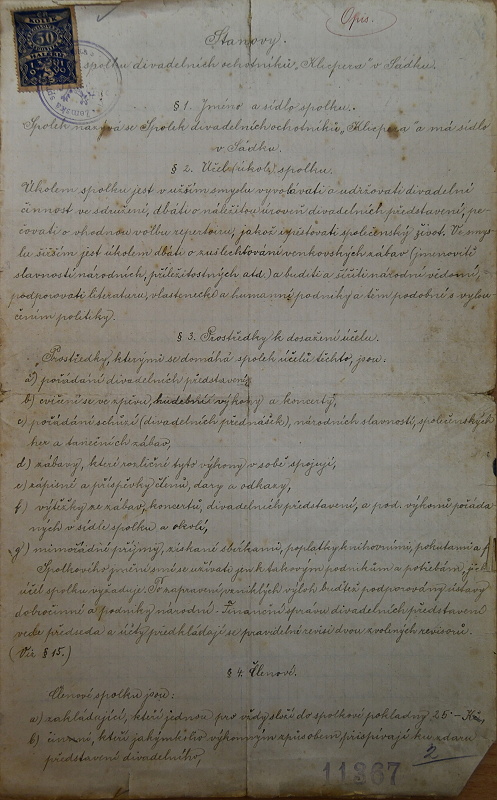 Opis.
Stanovy.
spolku divadelních ochotníků „Klicpera" v Sádku.
§ 1. Jméno a sídlo spolku.
Spolek nazývá se Spolek divadelních ochotníků „Klicpera" a má sídlo
v Sádku.
§ 2. Účel (úkol) spolku.
Úkolem spolku jest v užším smyslu vyvolávati a udržovati divadelní
činnost ve sdružení, dbáti o náležitou úroveň divadelních představení, pe-
čovati o vhodnou volbu repertoiru, jakož i pěstovati společenský život. Ve smy-
slu širším jest úkolem dbáti o zušlechťování venkovských zábav (jmenovitě
slavností národních, příležitostných atd.) a buditi a šířiti národní vědomí,
podporovati literaturu, vlastenecké a humanní podniky a těm podobné s vylou-
čením politiky.
§ 3. Prostředky k dosažení účelu.
Prostředky, kterými se domáhá spolek účelů těchto, jsou:
a) pořádání divadelních představení,
b) cvičení se ve zpěvu, hudební výkony a koncerty,
c) pořádání schůzí (divadelních přednášek), národních slavností, společenských
her a tanečních zábav,
d) zábavy, které rozličné tyto výkony v sobě spojují,
e) zápisné a příspěvky členů, dary a odkazy,
f) výtěžky ze zábav, koncertů, divadelních představení, a pod. výkonů pořáda-
ných v sídle spolku a okolí,
g) mimořádné příjmy, získané sbírkami, poplatky knihovními, pokutami a
Spolkového jmění smí se užívati jen k takovým podnikům a potřebám, jichž
účel spolku vyžaduje. Po zapravení vzniklých výloh buďtež podporovány ústavy
dobročinné a podniky národní. – Finanční správu divadelních představení
vede předseda a účty předkládají se pravidelné revisi dvou zvolených revisorů.
(Viz § 15.)
§ 4. Členové.
Členové spolku jsou:
a) zakládající, kteří jednou pro vždy složí do spolkové pokladny 25 – Kč,
b) činní, kteří jakýmkoliv výkonným způsobem přispívají ku zdaru
představení divadelního,
2
11367